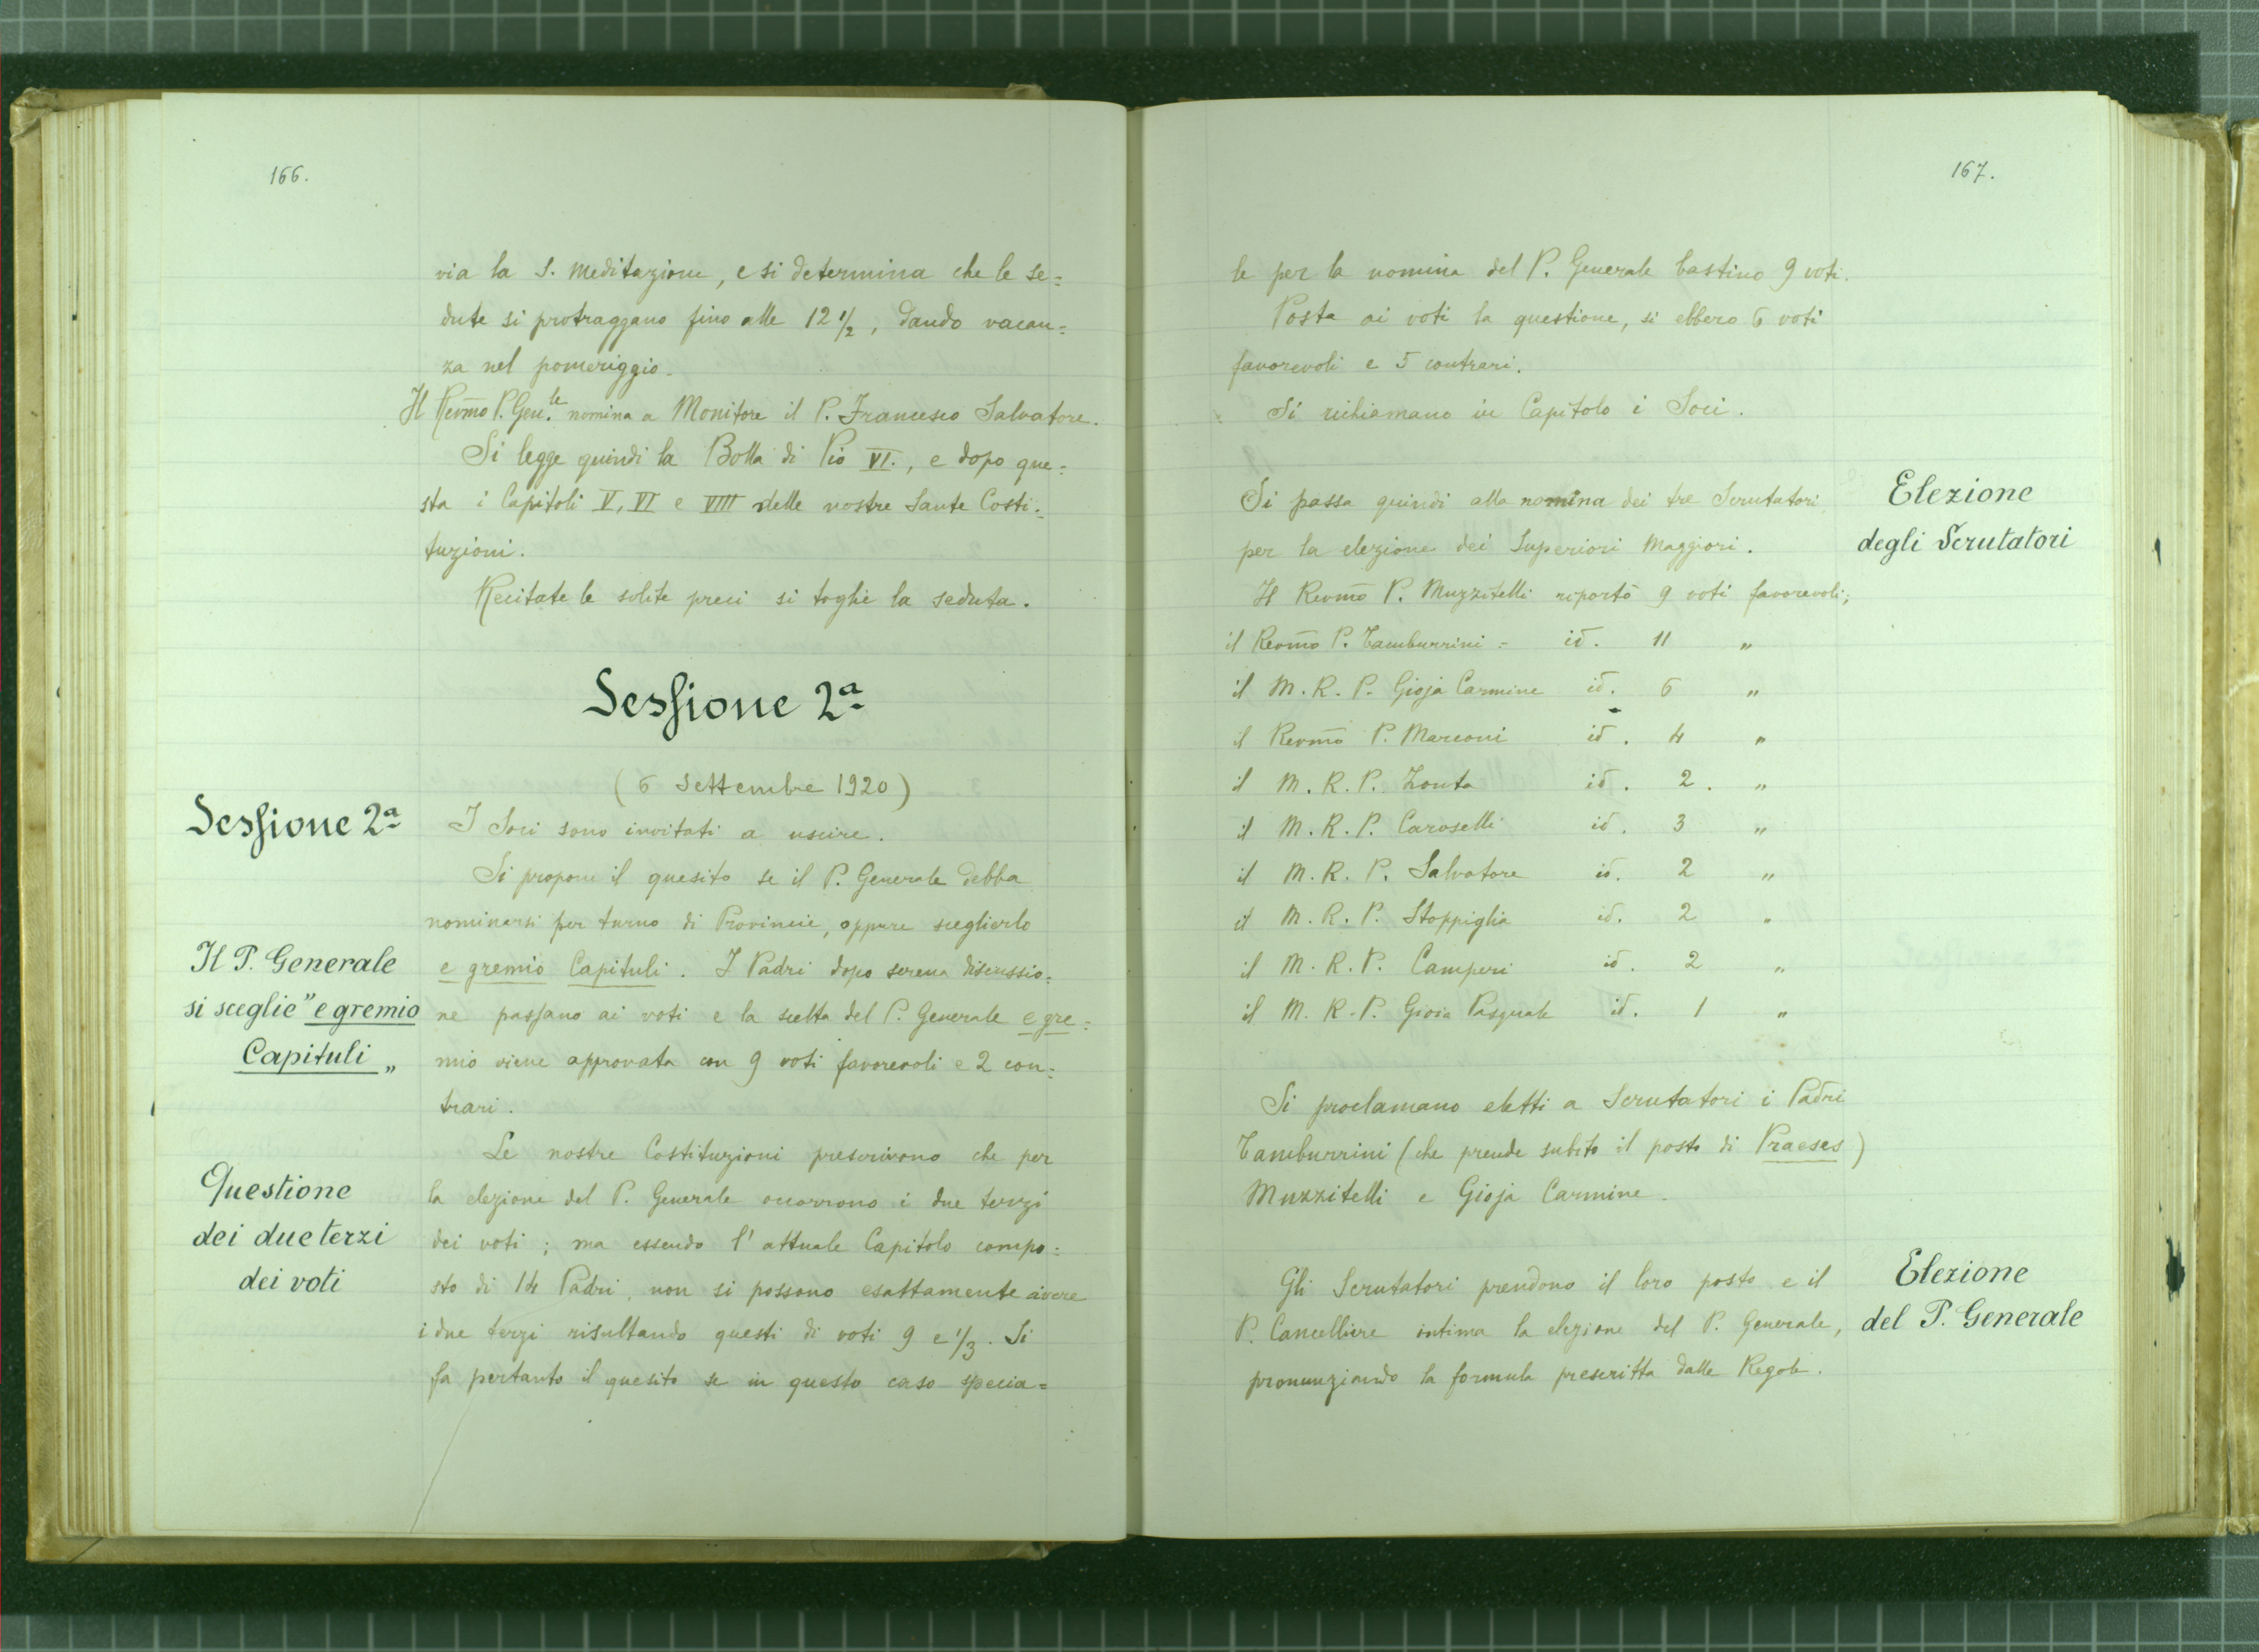 166.
via la S. Meditazione, e si determina che le se=
dute si protraggano fino alle 12 1/2, dando vacan=
za nel pomeriggio.
Il Revm̃o P. Gen.le nomina a Monitore il P. Francesco Salvatore.
Si legge quindi la Bolla di Pio VI., e dopo que=
sta i Capitoli V, VI e VIII delle nostre Sante Costi=
tuzioni.
Recitate le solite preci si toglie la seduta.
Sessione 2a
(6 Settembre 1920)
Sessione 2a
I Soci sono invitati a uscire.
Si propone il quesito se il P. Generale debba
nominarsi per turno di Provincie, oppure sceglierlo
Il P. Generale
si sceglie "e gremio
Capituli "
e gremio Capituli. I Padri dopo serena discussio=
ne passano ai voti e la scelta del P. Generale e gre=
mio viene approvata con 9 voti favorevoli e 2 con=
trari.
Questione
dei due terzi
dei voti
Le nostre Costituzioni prescrivono che per
la elezione del P. Generale occorrono i due terzi
dei voti; ma essendo l'attuale Capitolo compo=
sto di 14 Padri, non si possono esattamente avere
i due terzi risultando questi di voti 9 e 1/3. Si
fa pertanto il quesito se in questo caso specia=
167.
le per la nomina del P. Generale bastino 9 voti.
Posta ai voti la questione, si ebbero 6 voti
favorevoli e 5 contrari.
Si richiamano in Capitolo i Soci.
Elezione
degli Scrutatori
Si passa quindi alla nomina dei tre Scrutatori
per la elezione dei Superiori Maggiori.
Il Revm̃o P. Muzzitelli riportò 9 voti favorevoli;
il Revm̃o P. Tamburrini = id. 11 "
il M. R. P. Gioja Carmine id. 6 "
il Revm̃o P. Marconi id. 4 "
il M. R. P. Zonta id. 2. "
il M. R. P. Caroselli id. 3 "
il M. R. P. Salvatore id. 2 "
il M. R. P. Stoppiglia id. 2 "
il M. R. P. Camperi id. 2 "
il M. R. P. Gioia Pasquale id. 1 "
Si proclamano eletti a Scrutatori i Padri
Tamburrini (che prende subito il posto di Praeses)
Muzzitelli e Gioja Carmine.
Elezione
del P. Generale
Gli Scrutatori prendono il loro posto e il
P. Cancelliere intima la elezione del P. Generale,
pronunziando la formula prescritta dalle Regole.